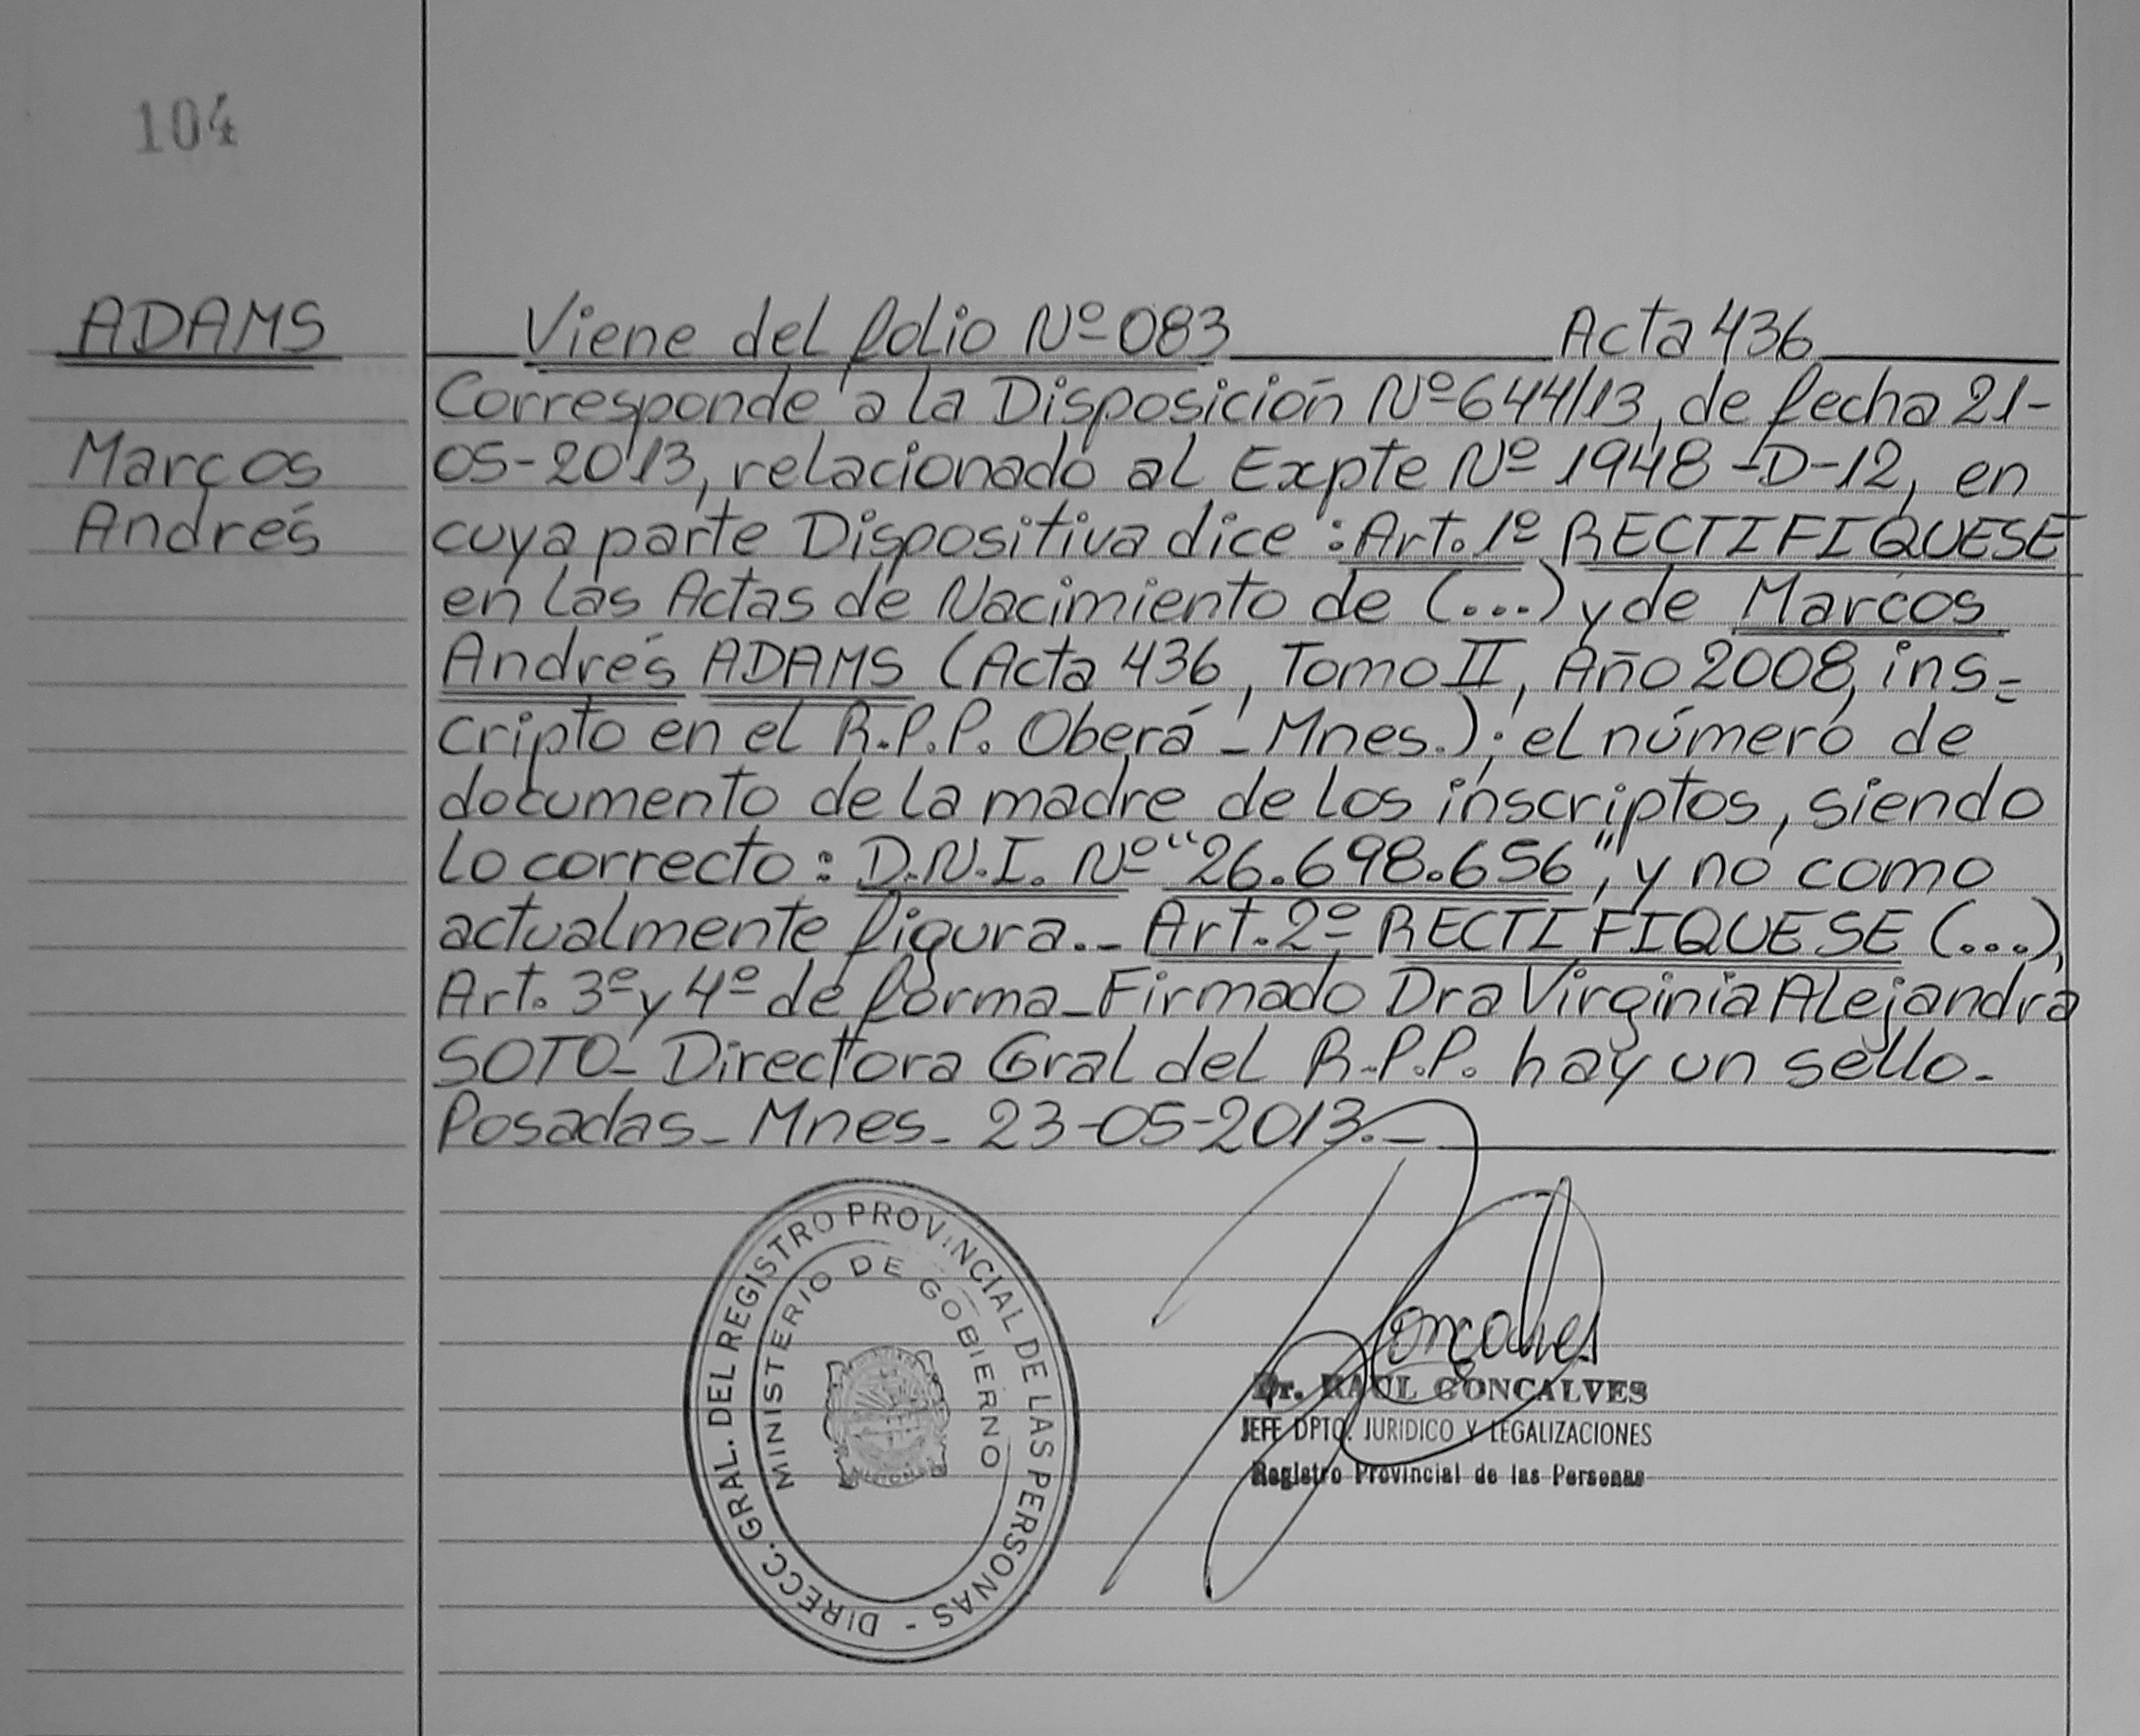 104
ADAMS
Marcos
Andrés
Viene del folio Nº 083 Acta 436
Corresponde a la Disposición Nº 644/13, de fecha 21-
05-2013, relacionado al Expte Nº 1948-D-12, en
cuya parte Dispositiva dice: Art. 1º RECTIFIQUESE
en las Actas de Nacimiento de (...) y de Marcos
Andrés ADAMS (Acta 436, Tomo II, Año 2008, ins-
cripto en el R.P.P. Oberá - Mnes.); el número de
documento de la madre de los inscriptos, siendo
lo correcto: D.N.I. Nº "26.698.656", y no como
actualmente figura.- Art. 2º RECTIFIQUESE (...),
Art. 3º y 4º de forma - Firmado Dra Virginia Alejandra
SOTO - Directora Gral del R.P.P. hay un sello.
Posadas - Mnes - 23-05-2013.-
DIRECC. GRAL. DEL REGISTRO PROVINCIAL DE LAS PERSONAS -
MINISTERIO DE GOBIERNO
Goncalves
Dr. RAUL GONCALVES
JEFE DPTO. JURIDICO Y LEGALIZACIONES
Registro Provincial de las Personas